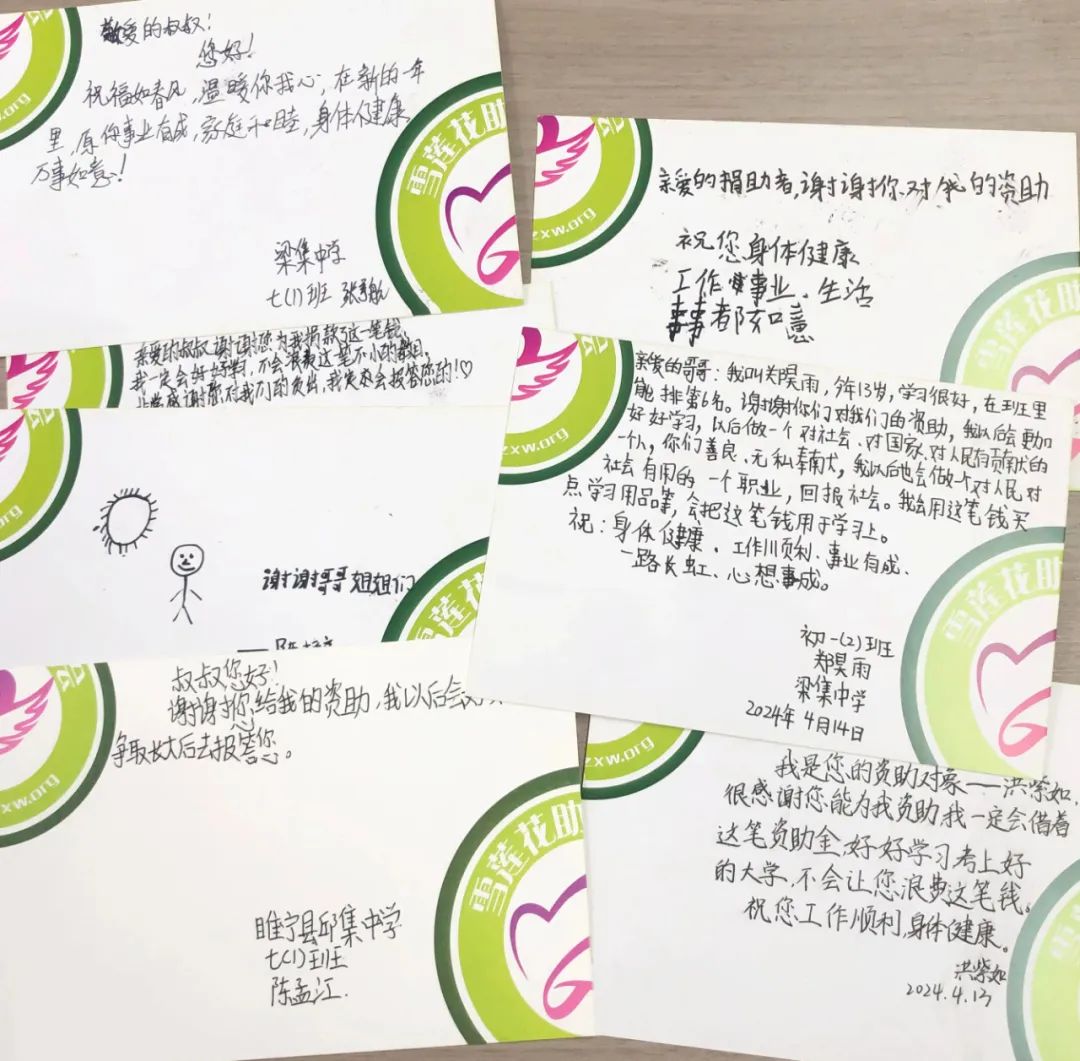 敬爱的叔叔！
您好！
祝福如春风，温暖你我心，在新的一年
里，原你事业有成，家庭和睦，身体健康
万事如意！
梁集中学
七(1)班
雪莲花助
.org
亲爱的捐助者，谢谢你对我的资助
祝您身体健康
工作 事业、生活
事事都如意
雪莲花助
zxw.org
亲爱的叔叔谢谢您为我捐款了这一笔钱
我一定会好好学习，不会浪费这笔不小的数目。
非常感谢你对我们的付出，我未来会报答您的！♡
亲爱的哥哥：我叫郑昊雨，今年13岁，学习很好，在班里
能排第6名。谢谢你们对我们的资助，我以后会更加
好好学习，以后做一个对社会、对国家、对人民有贡献的
一个人，你们善良、无私奉献，我以后也会做一个对人民对
社会有用的一个职业，回报社会。我会用这笔钱买
点学习用品等，会把这笔钱用于学习上。
祝：身体健康、工作顺利、事业有成、
一路长虹、心想事成。
初一(2)班
郑昊雨
梁集中学
2024年4月14日
雪莲花助
zxw.org
谢谢哥哥姐姐们
雪莲花
org
叔叔您好！
谢谢您给我的资助，我以后会
争取长大后去报答您。
睢宁县邱集中学
七(1)班
陈孟江
雪莲花助
xw.org
我是您的资助对象——洪紫如，
很感谢您能为我资助，我一定会借着
这笔资助金，好好学习考上好
的大学，不会让您浪费这笔钱。
祝您工作顺利，身体健康。
洪紫如
2024.4.13
雪莲
zxw.org